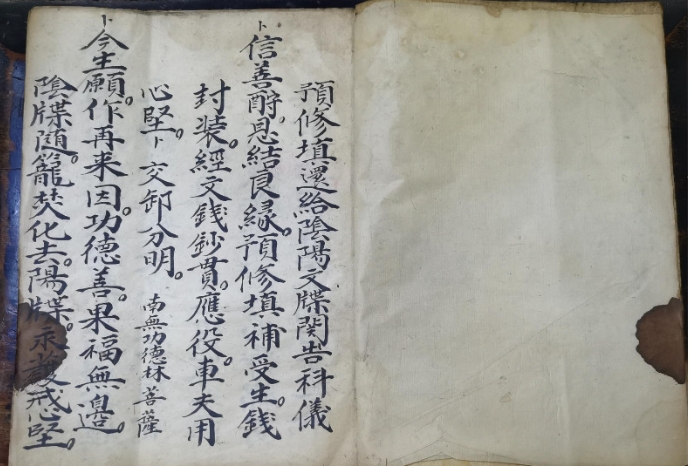 預修填還給陰陽文牒関告科儀
卜信善酧恩結良緣。預修填補受生錢
封装。經文錢鈔貫。應役。車夫用
心堅。卜交卸分明。南無功德林菩薩
卜今生願。作再来因。功德善。果福無邉。
陰牒随籠焚化去。陽牒。永護戒堅。